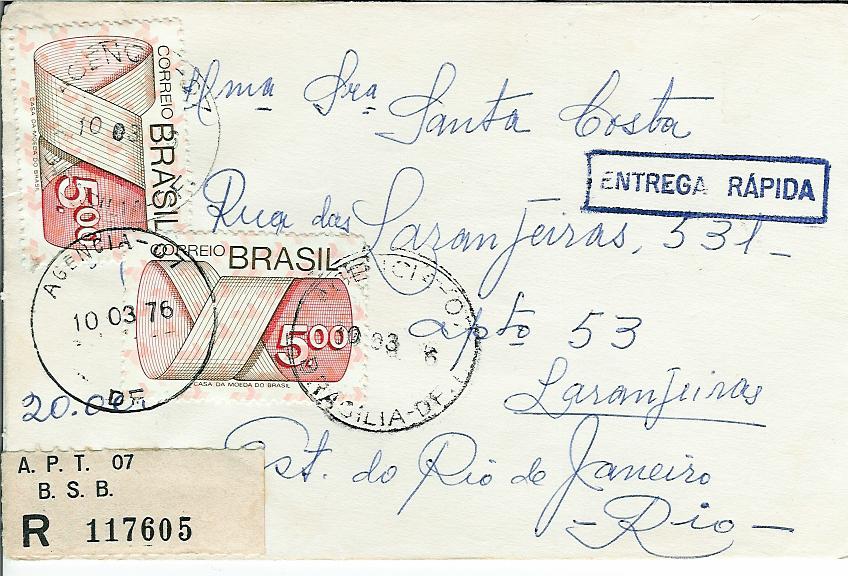 CORREIO BRASIL
CASA DA MOEDA DO BRASIL
500
10 03
Ilma Sra
Santa Costa
ENTREGA RÁPIDA
Rua das
Laranjeiras, 531 -
aptº 53
Laranjeiras
Est. do Rio de Janeiro
- Rio -
CORREIO BRASIL
500
CASA DA MOEDA DO BRASIL
AGENCIA-07
10 03 76
DF
10 03 6
BRASILIA-DF
20.00
A. P. T. 07
B. S. B.
R 117605